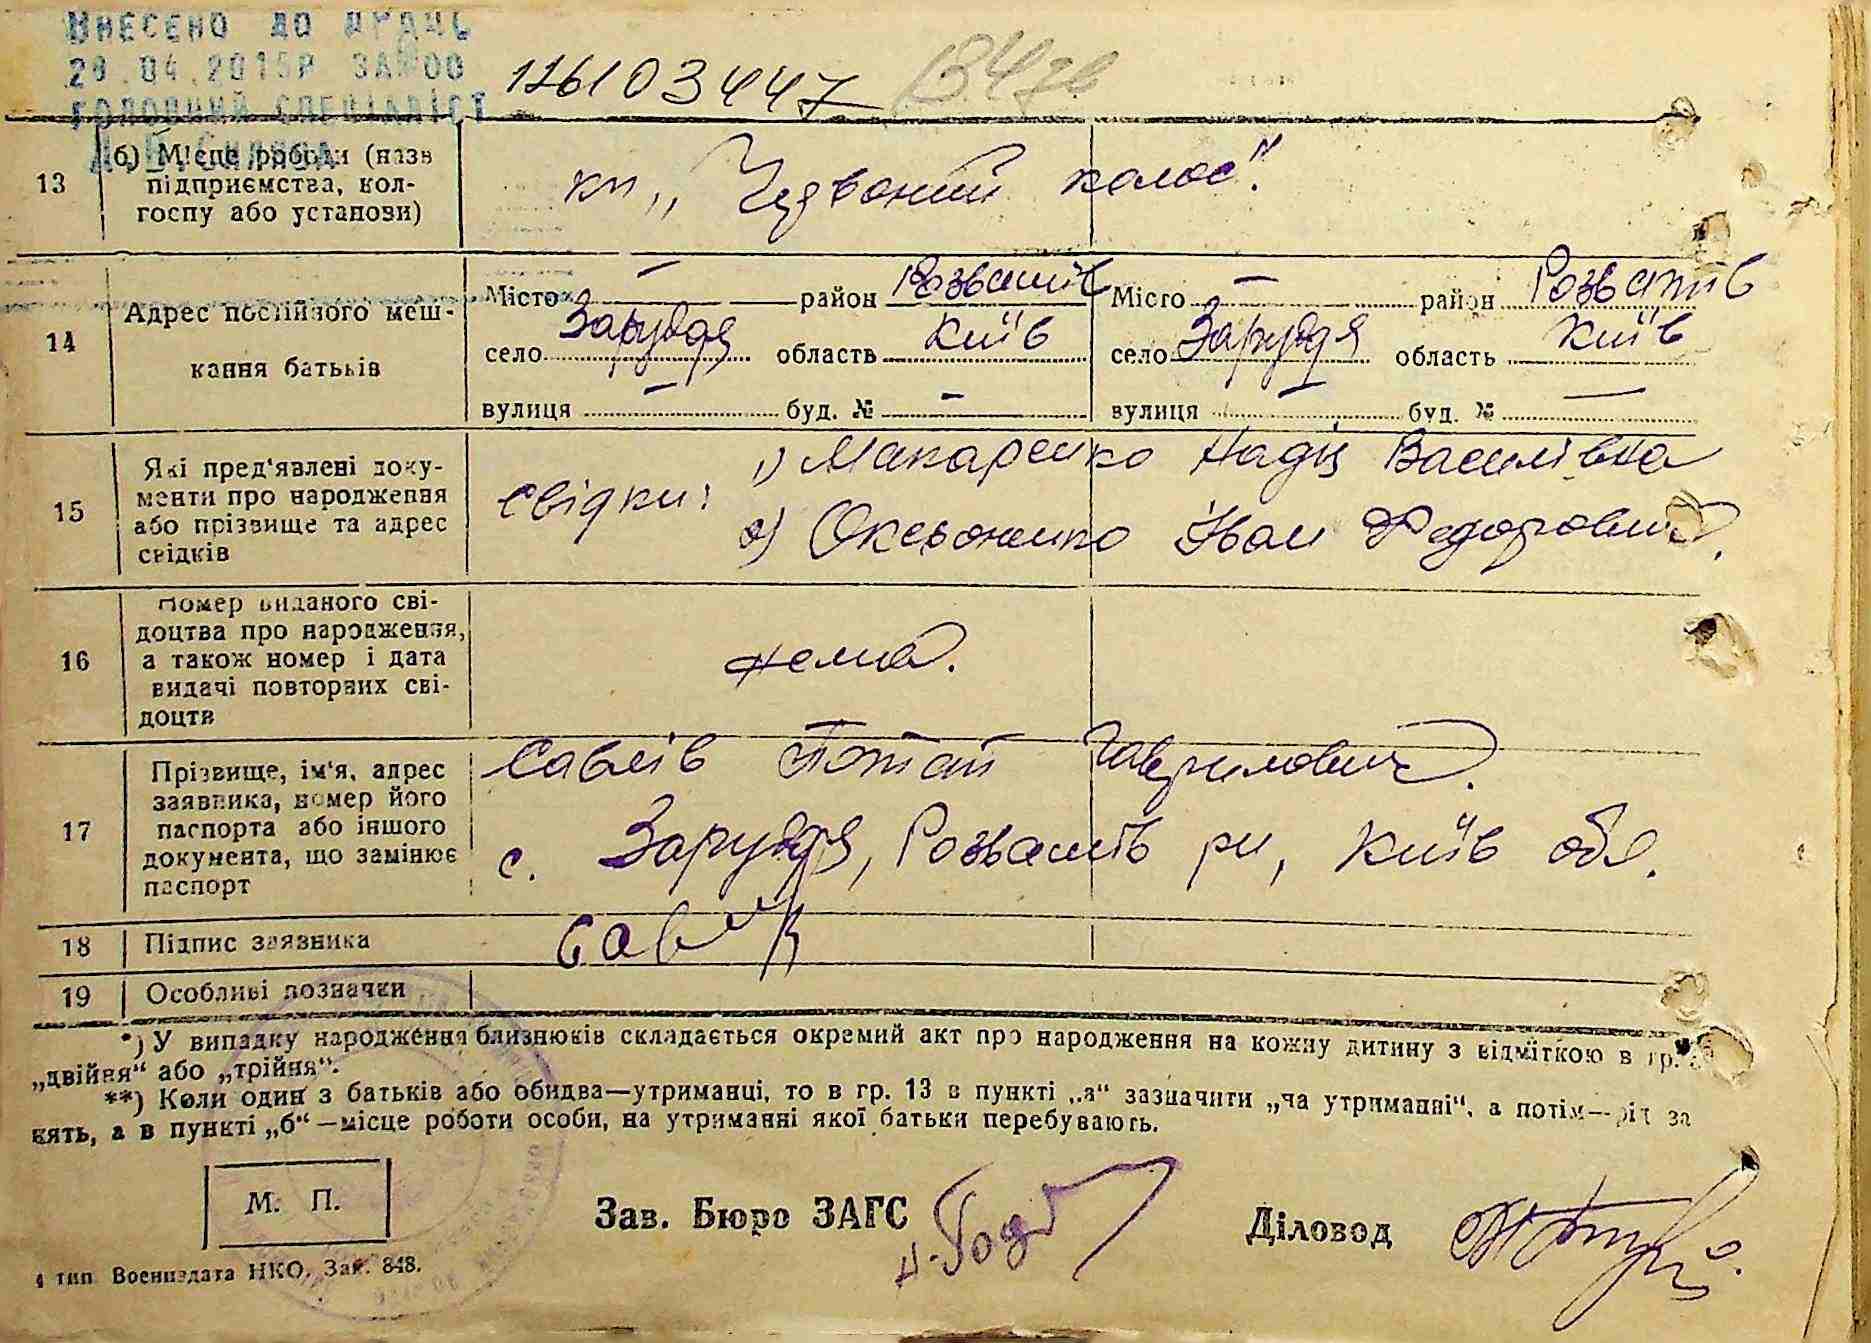 ВНЕСЕНО ДО
ГОЛОВНИЙ СПЕЦІАЛІСТ
1261034447 1347в
13 б) Місце роботи (назв підприємства, кол-госпу або установи) кп „Червоний колос".
14 Адрес постійного меш-кання батьків
Місто — район Розважів Місто — район Розважів
село Заруддя область Київ село Заруддя область Київ
вулиця — буд. № — вулиця — буд. № —
15 Які пред'явлені доку-
менти про народження
або прізвище та адрес
свідків
Свідки: 1) Макаренко Надія Василівна
2) Іван Федорович.
16 Номер виданого сві-
доцтва про народження,
а також номер і дата
видачі повторних сві-
доцтв
нема.
17 Прізвище, ім'я, адрес
заявника, номер його
паспорта або іншого
документа, що замінює
паспорт
Савлів Потап Гаврилович.
с. Заруддя, Розважів рн, Київ обл.
18 Підпис заявника
19 Особливі позначки
*) У випадку народження близнюків складається окремий акт про народження на кожну дитину з відміткою в гр.
„двійня" або „трійня".
**) Коли один з батьків або обидва—утриманці, то в гр. 13 в пункті „а" зазначити „на утриманні", а потім— за
нять, а в пункті „б"—місце роботи особи, на утриманні якої батьки перебувають.
М. П.
Зав. Бюро ЗАГС
Діловод
4 тип Воениздата НКО. Зак. 848.